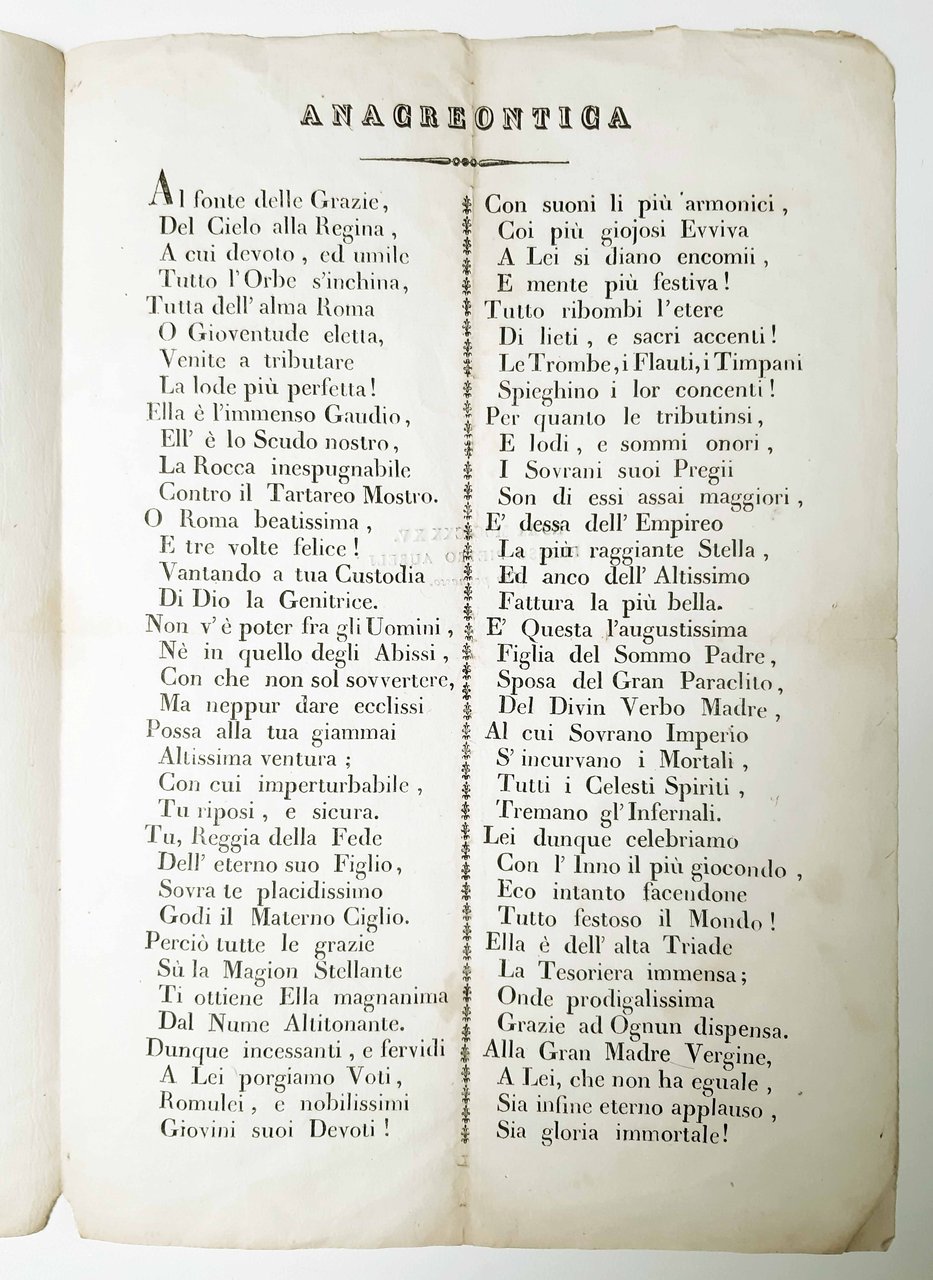 ANACREONTICA
Al fonte delle Grazie,
Del Cielo alla Regina,
A cui devoto, ed umile
Tutto l'Orbe s'inchina,
Tutta dell'alma Roma
O Gioventude eletta,
Venite a tributare
La lode più perfetta!
Ella è l'immenso Gaudio,
Ell' è lo Scudo nostro,
La Rocca inespugnabile
Contro il Tartareo Mostro.
O Roma beatissima,
E tre volte felice!
Vantando a tua Custodia
Di Dio la Genitrice.
Non v'è poter fra gli Uomini,
Nè in quello degli Abissi,
Con che non sol sovvertere,
Ma neppur dare ecclissi
Possa alla tua giammai
Altissima ventura;
Con cui imperturbabile,
Tu riposi, e sicura.
Tu, Reggia della Fede
Dell' eterno suo Figlio,
Sovra te placidissimo
Godi il Materno Ciglio.
Perciò tutte le grazie
Sù la Magion Stellante
Ti ottiene Ella magnanima
Dal Nume Altitonante.
Dunque incessanti, e fervidi
A Lei porgiamo Voti,
Romulei, e nobilissimi
Giovini suoi Devoti!
Con suoni li più armonici,
Coi più giojosi Evviva
A Lei si diano encomii,
E mente più festiva!
Tutto ribombi l'etere
Di lieti, e sacri accenti!
Le Trombe, i Flauti, i Timpani
Spieghino i lor concenti!
Per quanto le tributinsi,
E lodi, e sommi onori,
I Sovrani suoi Pregii
Son di essi assai maggiori,
E' dessa dell' Empireo
La più raggiante Stella,
Ed anco dell' Altissimo
Fattura la più bella.
E' Questa l'augustissima
Figlia del Sommo Padre,
Sposa del Gran Paraclito,
Del Divin Verbo Madre,
Al cui Sovrano Imperio
S' incurvano i Mortali,
Tutti i Celesti Spiriti,
Tremano gl'Infernali.
Lei dunque celebriamo
Con l' Inno il più giocondo,
Eco intanto facendone
Tutto festoso il Mondo!
Ella è dell' alta Triade
La Tesoriera immensa;
Onde prodigalissima
Grazie ad Ognun dispensa.
Alla Gran Madre Vergine,
A Lei, che non ha eguale,
Sia infine eterno applauso,
Sia gloria immortale!